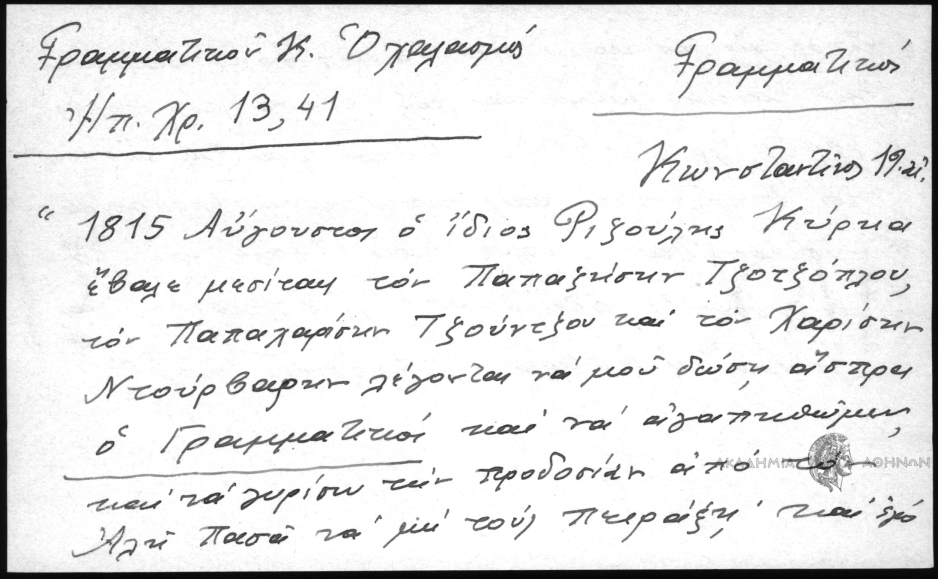 Γραμματικοῦ Κ. Ὁ χαλασμός
Ἠπ. Χρ. 13, 41
Γραμματικός
Κωνσταντῖνος 19. αἰ.
“ 1815 Αὔγουστος ὁ ἴδιος Ριζούλης Κύρκα
ἔβαλε μεσίτας τόν Παπαζήσην Τζοτζόπλου,
τόν Παπαχαρίσην Τζούντζου καί τόν Χαρίσην
Ντούρβαρην λέγοντας νά μοῦ δώσῃ ἄσπρα
ὁ Γραμματικός καί νά ἀγαπηθῶμεν,
καί νά γυρίσω τήν προδοσίαν ἀπό τό
Ἀλῆ Πασᾶ νά μή τούς πειράξῃ· καί ἐγώ
ΑΚΑΔΗΜΙΑ ΑΘΗΝΩΝ